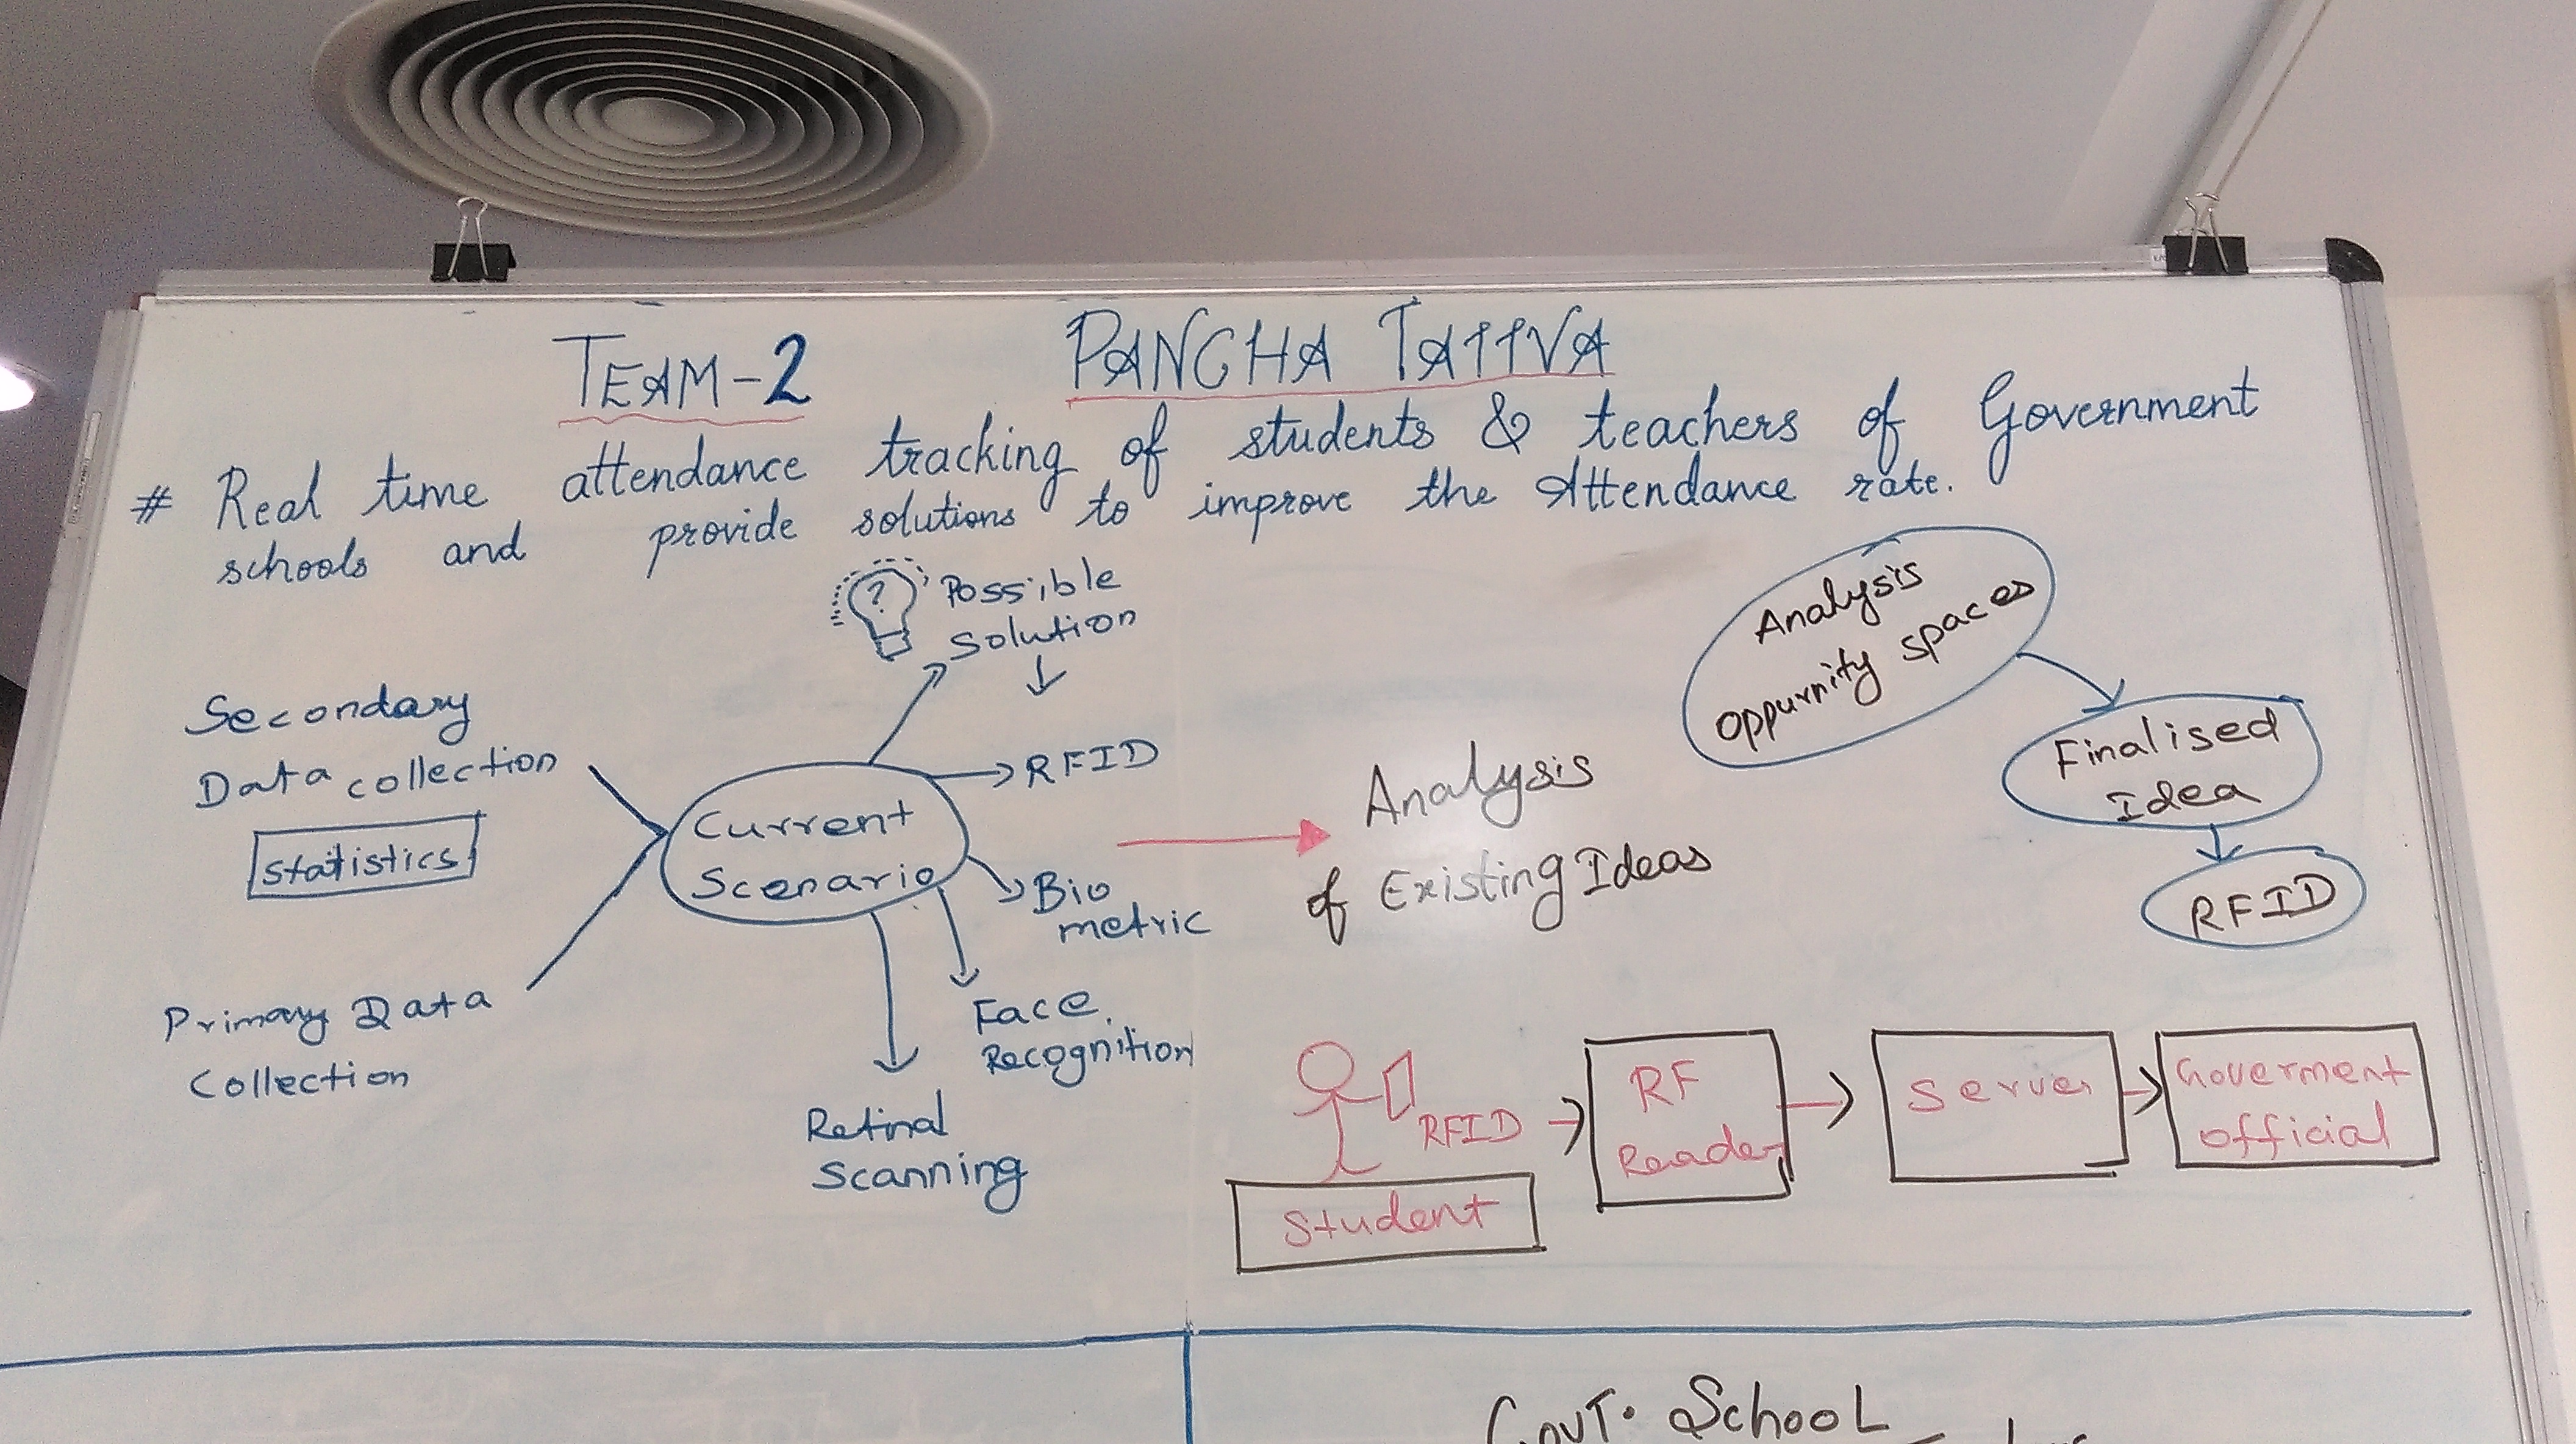 TEAM-2 PANCHA TATTVA
# Real time attendance tracking of students & teachers of Government
schools and provide solutions to improve the Attendance rate.
?
Possible
Solution
Secondary
Data collection
Statistics
Primary Data
Collection
Current
Scenario
RFID
Bio
metric
Face
Recognition
Retinal
Scanning
Analysis
of Existing Ideas
Analysis
oppurnity spaces
Finalised
Idea
RFID
RFID
Student
RF
Reader
Server
Goverment
official
GOVT. SCHOOL